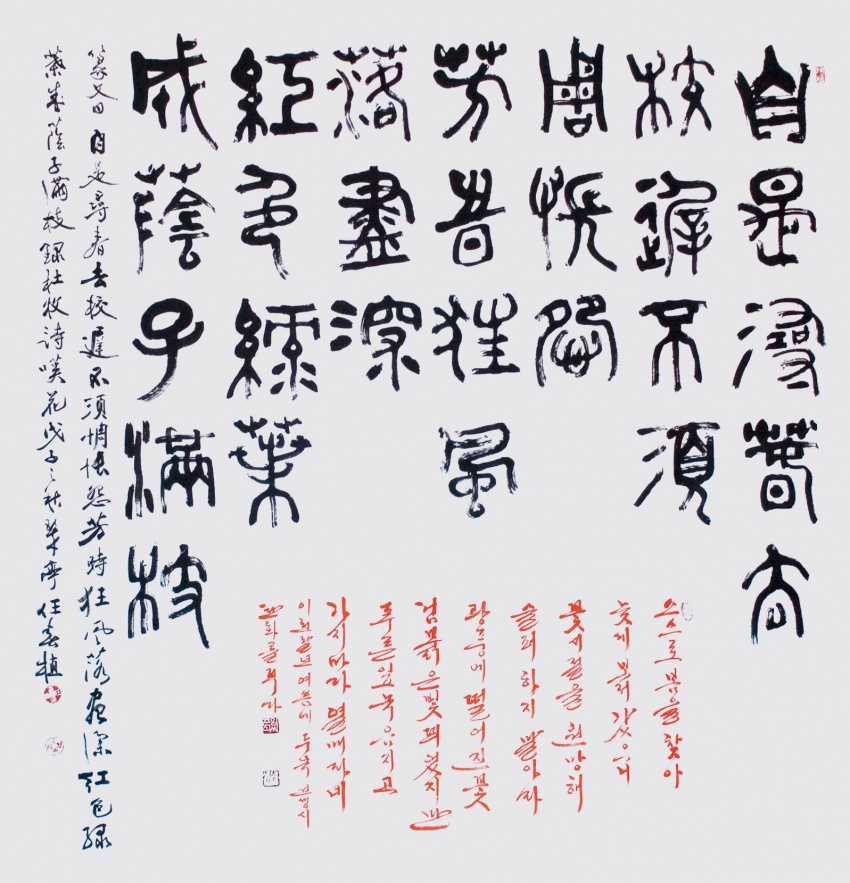 自是尋春去
校遲不須
周悵怨
芳時狂風
落盡深
紅色綠葉
成蔭子滿枝
篆文曰 自是尋春去校遲不須惆悵怨芳時狂風落盡深紅色綠
葉成蔭子滿枝 錄杜牧詩嘆花 戊子之秋 翠亭 任春植
스스로 봄을 찾아
늦게 보러 갔으니
꽃시절을 원망해
슬퍼하지 말아라
광풍에 떨어진 꽃
검붉은 빛 띄었지만
푸른잎 녹음지고
가지마다 열매라네
이천팔년 여름에 두목 선생시
탄화를 쓰다